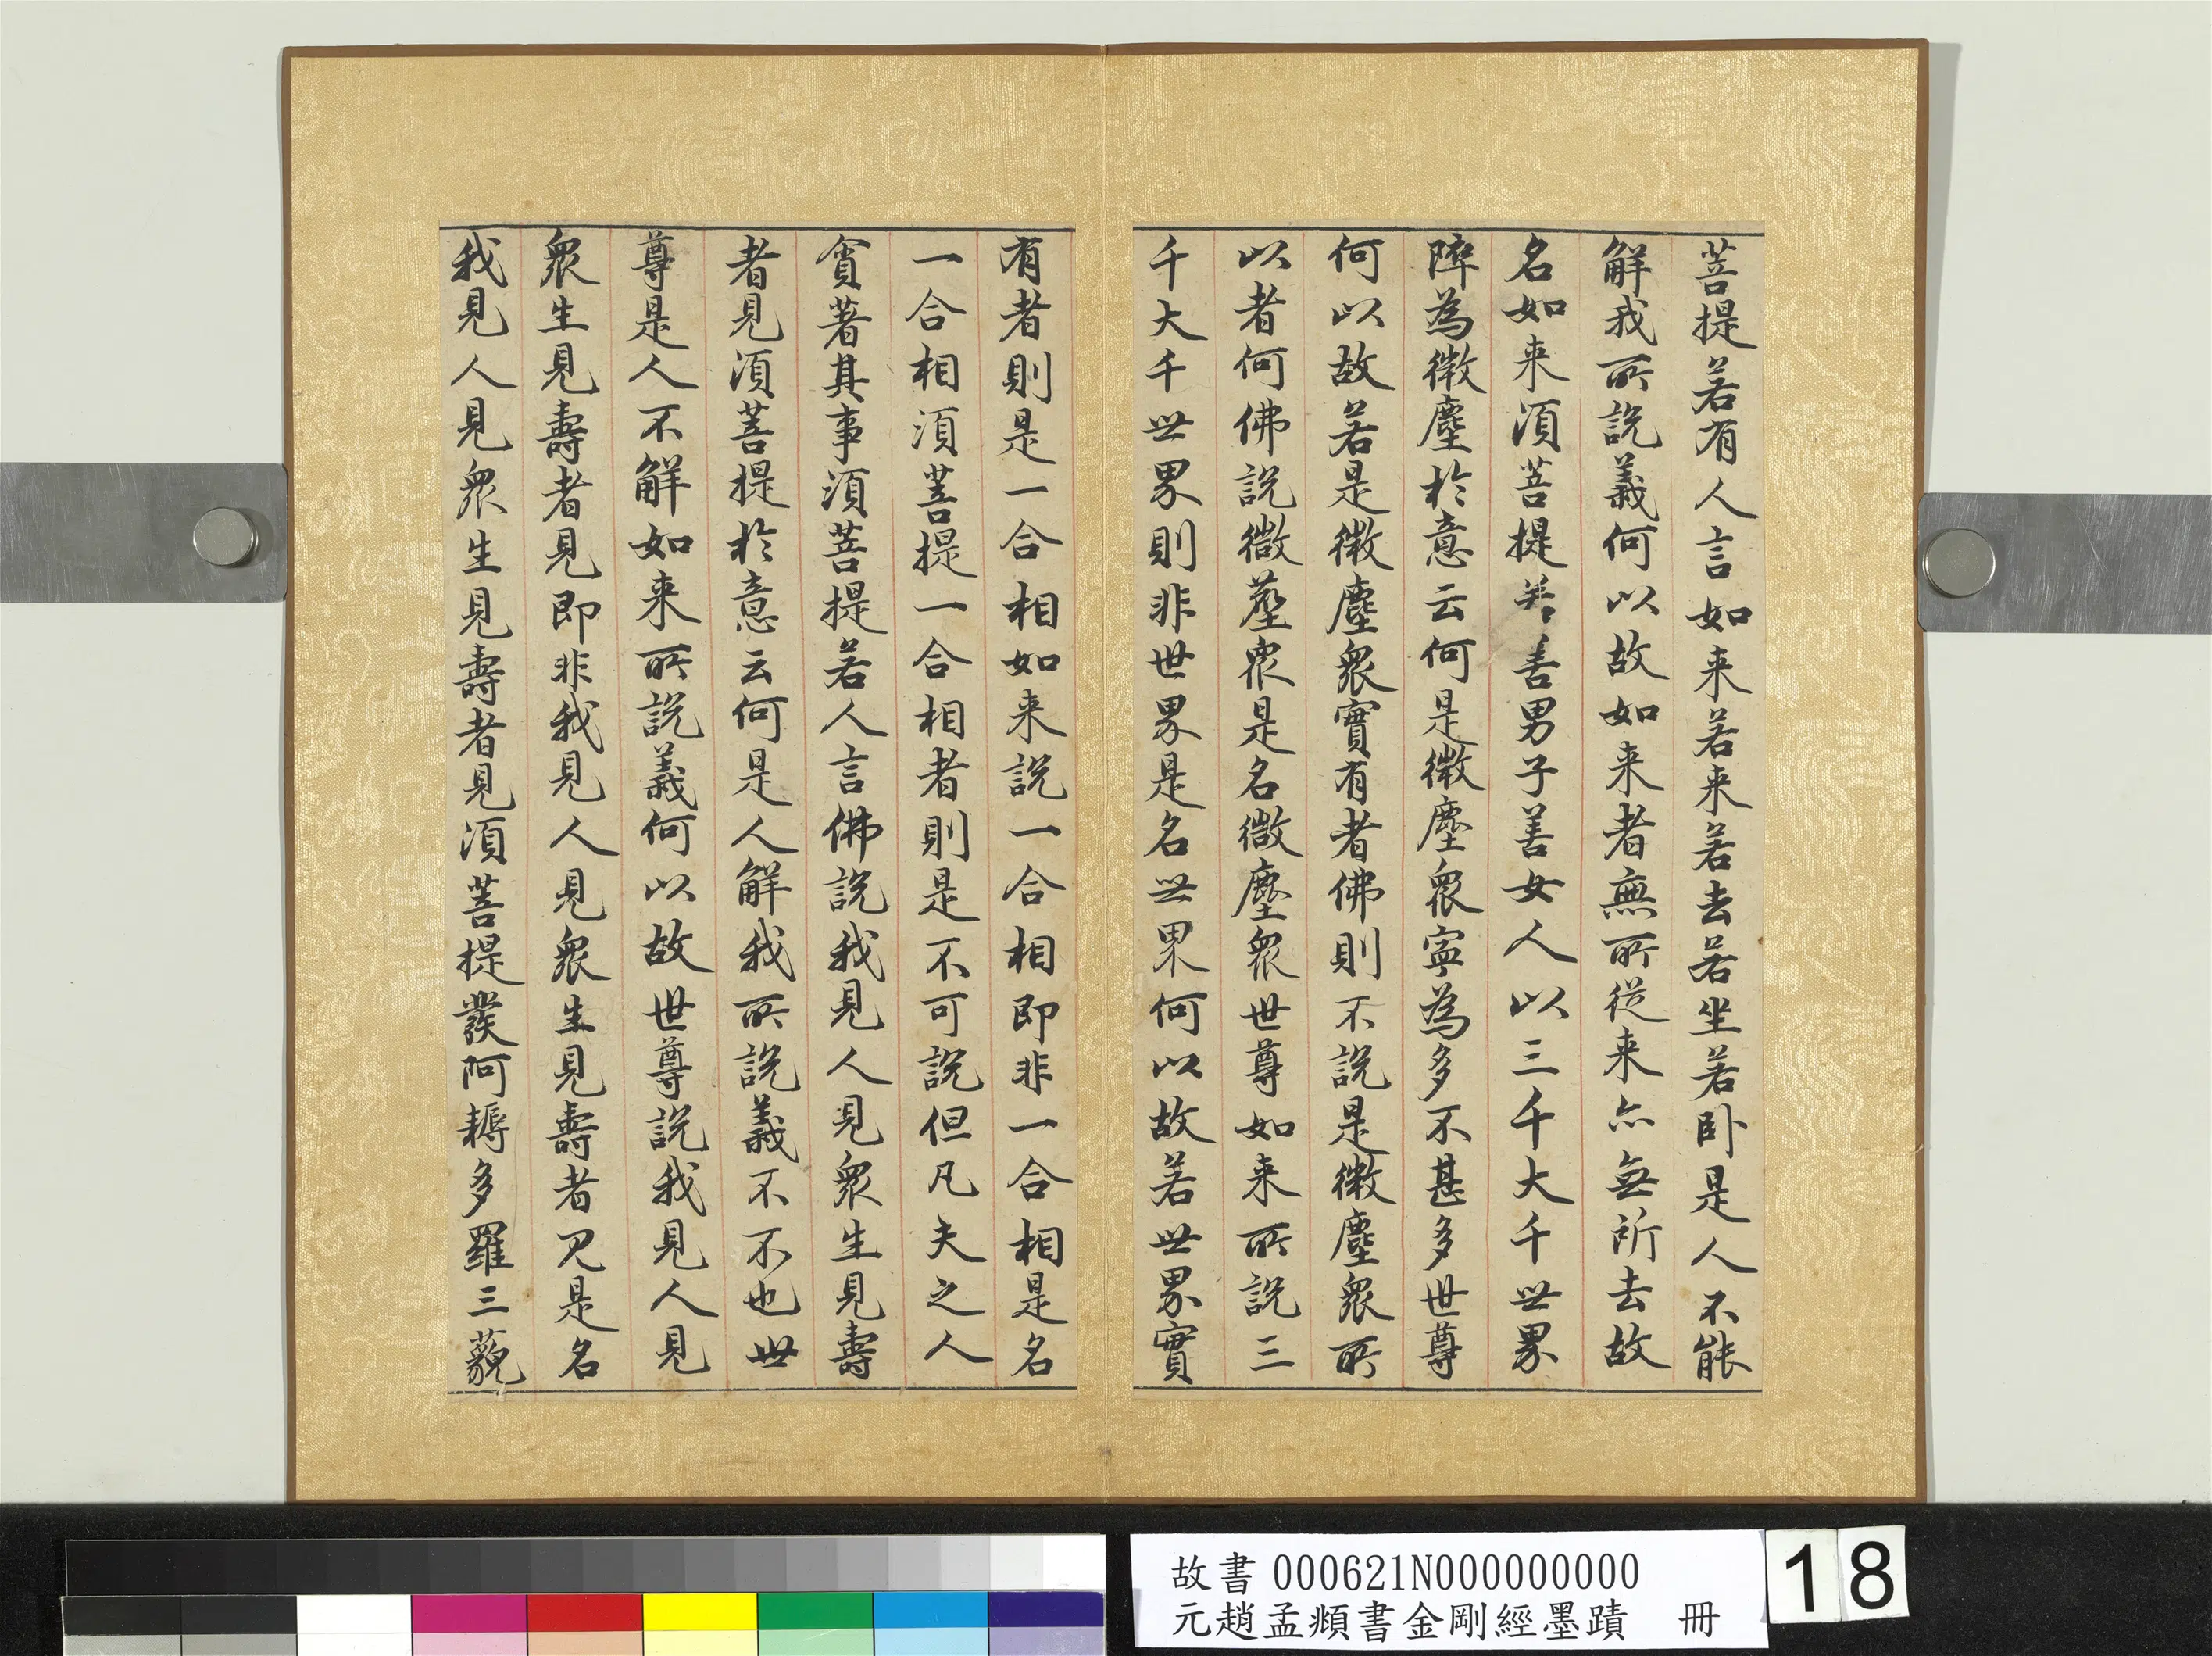 菩提若有人言如来若来若去若坐若卧是人不能
解我所説義何以故如来者無所從来亦無所去故
名如来須菩提善男子善女人以三千大千世界
碎為微塵於意云何是微塵眾寧為多不甚多世尊
何以故若是微塵眾實有者佛則不說是微塵眾所
以者何佛說微塵眾是名微塵眾世尊如来所說三
千大千世界則非世界是名世界何以故若世界實
有者則是一合相如来說一合相即非一合相是名
一合相須菩提一合相者則是不可說但凡夫之人
貪著其事須菩提若人言佛說我見人見眾生見壽
者見須菩提於意云何是人解我所說義不不也世
尊是人不解如来所說義何以故世尊說我見人見
眾生見壽者見即非我見人見眾生見壽者見是名
我見人見眾生見壽者見須菩提發阿耨多羅三藐
故書 000621N000000000
元趙孟頫書金剛經墨蹟 冊
18